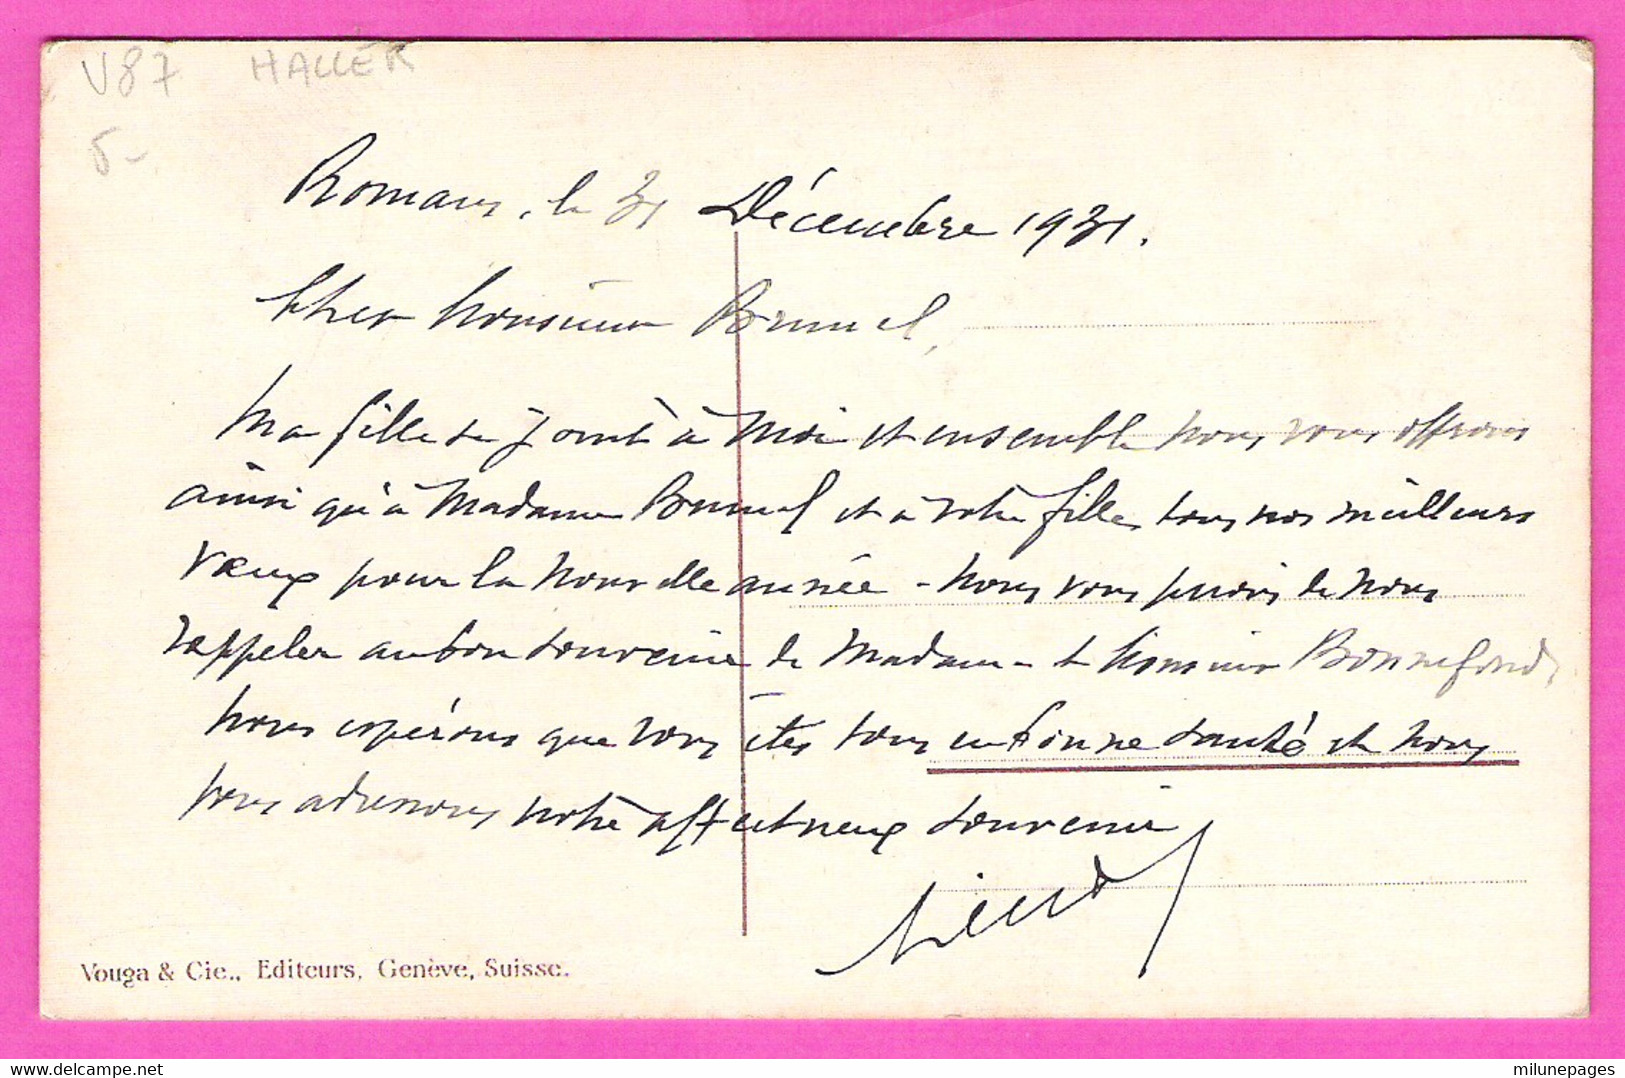 V87 HALLER
5-
Romans, le 31 Décembre 1931.
Cher Monsieur Brunel,
Ma fille se joint à moi et ensemble nous vous offrons
ainsi qu'à Madame Brunel et à votre fille, tous nos meilleurs
vœux pour la nouvelle année - nous vous prions de nous
rappeler au bon souvenir de Madame & Monsieur Bonnefond,
nous espérons que vous êtes tous en bonne santé et nous
vous adressons notre affectueux souvenir
Vouga & Cie., Editeurs, Genève, Suisse.
milunepages